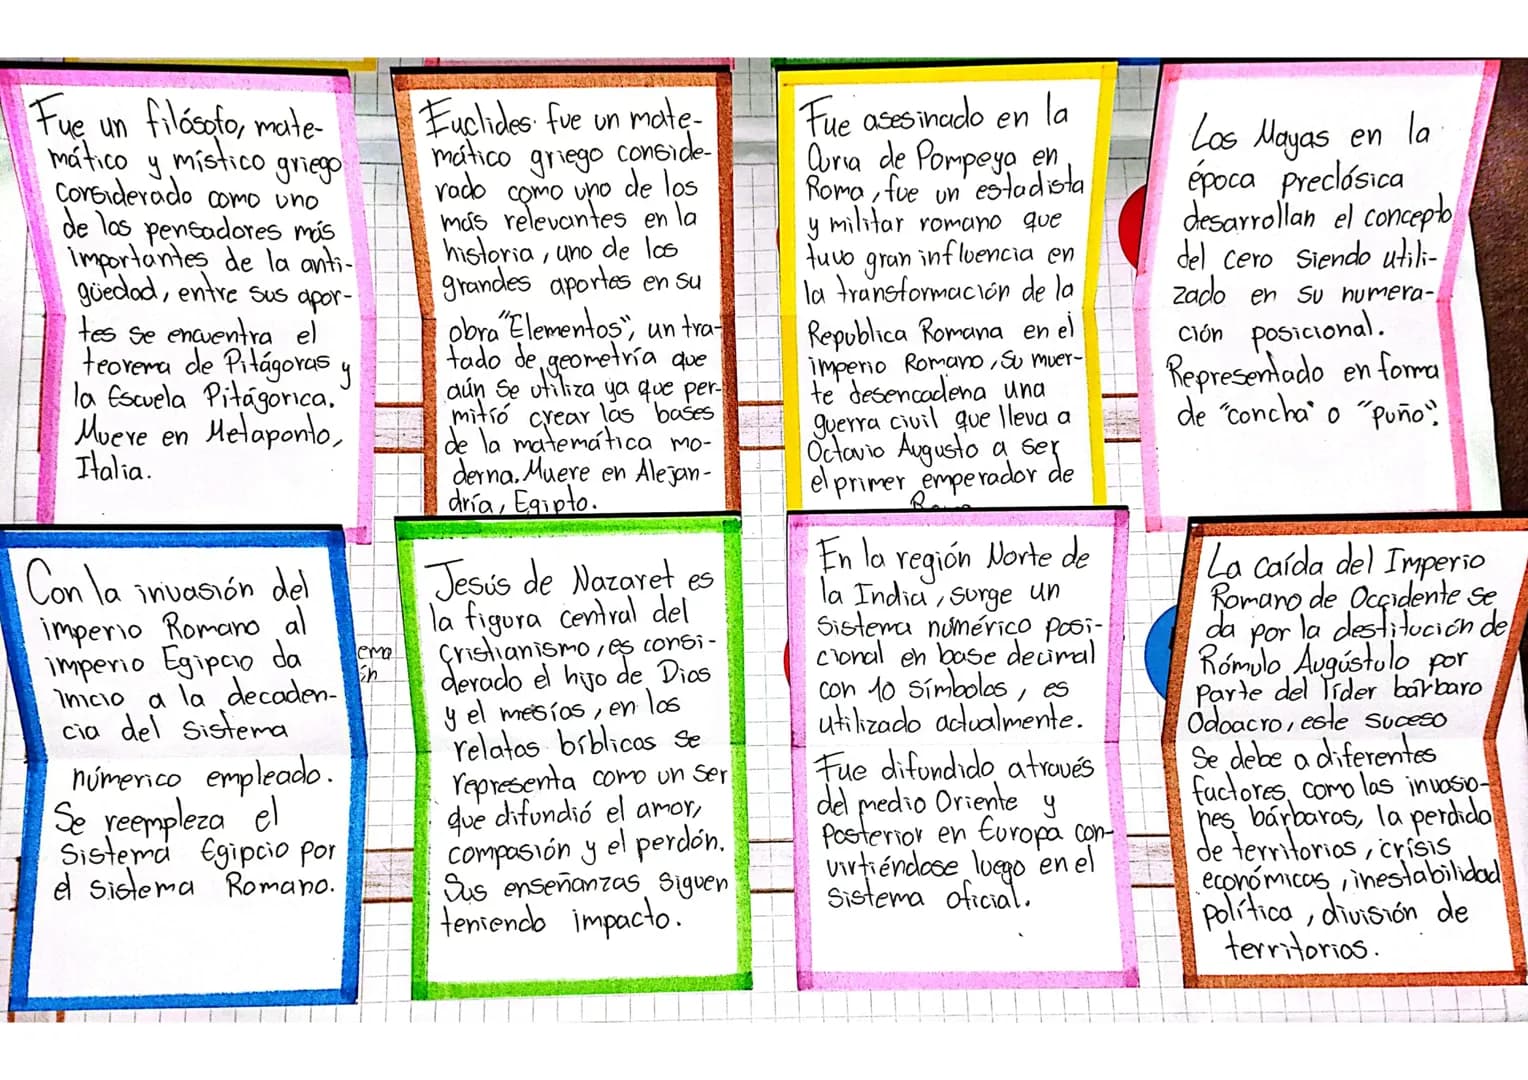 Fue un filósofo, mate-
mático y místico griego
considerado como uno
de los pensadores más
importantes de la anti-
güedad, entre sus apor-
tes se encuentra el
teorema de Pitágoras y
la Escuela Pitágorica.
Muere en Metaponto,
Italia.
Euclides fue un mate-
mático griego conside-
rado como uno de los
más relevantes en la
historia, uno de los
grandes aportes en su
obra "Elementos", un tra-
tado de geometría que
aún se utiliza ya que per-
mitió crear las bases
de la matemática mo-
derna. Muere en Alejan-
dría, Egipto.
Fue asesinado en la
Curia de Pompeya en
Roma, fue un estadista
y militar romano que
tuvo gran influencia en
la transformación de la
Republica Romana en el
imperio Romano, su muer-
te desencadena una
guerra civil que lleva a
Octavio Augusto a ser
el primer emperador de
Los Mayas en la
época preclásica
desarrollan el concepto
del cero siendo utili-
zado en su numera-
ción posicional.
Representado en forma
de "concha" o "puño".
Con la invasión del
imperio Romano al
imperio Egipcio da
inicio a la decaden-
cia del sistema
númerico empleado.
Se reempleza el
sistema Egipcio por
el sistema Romano.
Jesús de Nazaret es
la figura central del
cristianismo, es consi-
derado el hijo de Dios
y el mesías, en los
relatos bíblicos se
representa como un ser
que difundió el amor,
compasión y el perdón.
Sus enseñanzas siguen
teniendo impacto.
En la región Norte de
la India, surge un
sistema numérico posi-
cional en base decimal
con 10 símbolos, es
utilizado actualmente.
Fue difundido através
del medio Oriente y
Posterior en Europa con-
virtiéndose luego en el
sistema oficial.
La caída del Imperio
Romano de Occidente se
da por la destitución de
Rómulo Augústulo por
parte del líder bárbaro
Odoacro, este suceso
se debe a diferentes
factores como las invasio-
nes bárbaras, la perdida
de territorios, crisis
económicas, inestabilidad
política, división de
territorios.